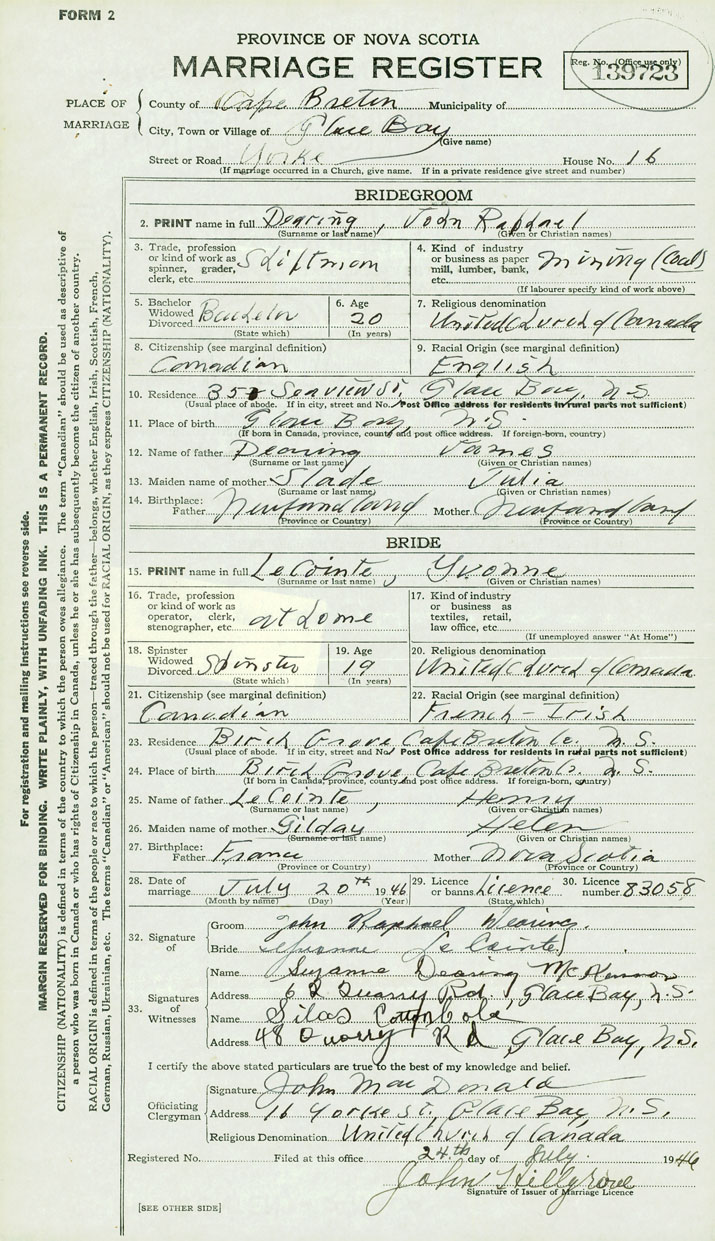 FORM 2
PROVINCE OF NOVA SCOTIA
MARRIAGE REGISTER
Reg. No. (Office use only)
139723
PLACE OF MARRIAGE
County of Cape Breton Municipality of
City, Town or Village of Glace Bay
(Give name)
Street or Road Yorke House No. 16
(If marriage occurred in a Church, give name. If in a private residence give street and number)
BRIDEGROOM
2. PRINT name in full Dearing, John Raphael
(Surname or last name) (Given or Christian names)
3. Trade, profession or kind of work as spinner, grader, clerk, etc. Shiftman
4. Kind of industry or business as paper mill, lumber, bank, etc. Mining (Coal)
(If labourer specify kind of work above)
5. Bachelor Widowed Divorced Bachelor
(State which)
6. Age 20
(In years)
7. Religious denomination
United Church of Canada
8. Citizenship (see marginal definition)
Canadian
9. Racial Origin (see marginal definition)
English
10. Residence 352 Seaview St. Glace Bay, N.S.
(Usual place of abode. If in city, street and No. Post Office address for residents in rural parts not sufficient)
11. Place of birth Glace Bay, N.S.
(If born in Canada, province, county and post office address. If foreign-born, country)
12. Name of father Dearing James
(Surname or last name) (Given or Christian names)
13. Maiden name of mother Slade Julia
(Surname or last name) (Given or Christian names)
14. Birthplace: Father Newfoundland Mother Newfoundland
(Province or Country) (Province or Country)
BRIDE
15. PRINT name in full LeCointe, Yvonne
(Surname or last name) (Given or Christian names)
16. Trade, profession or kind of work as operator, clerk, stenographer, etc. at home
17. Kind of industry or business as textiles, retail, law office, etc.
(If unemployed answer "At Home")
18. Spinster Widowed Divorced Spinster
(State which)
19. Age 19
(In years)
20. Religious denomination
United Church of Canada
21. Citizenship (see marginal definition)
Canadian
22. Racial Origin (see marginal definition)
French Irish
23. Residence Birch Grove Cape Breton Co. N.S.
(Usual place of abode. If in city, street and No. Post Office address for residents in rural parts not sufficient)
24. Place of birth Birch Grove, Cape Breton Co. N.S.
(If born in Canada, province, county and post office address. If foreign-born, country)
25. Name of father LeCointe, Henry
(Surname or last name) (Given or Christian names)
26. Maiden name of mother Gilday Helen
(Surname or last name) (Given or Christian names)
27. Birthplace: Father France Mother Nova Scotia
(Province or Country) (Province or Country)
28. Date of marriage July 20th 1946
(Month by name) (Day) (Year)
29. Licence or banns Licence
(State which)
30. Licence number 83058
32. Signature of
Groom John Raphael Dearing
Bride Yvonne Le Cointe
33. Signatures of Witnesses
Name Suzanne Dearing McKinnon
Address 62 Quarry Rd., Glace Bay, N.S.
Name Silas
Address 48 Quarry Rd, Glace Bay, N.S.
I certify the above stated particulars are true to the best of my knowledge and belief.
Officiating Clergyman
Signature John MacDonald
Address 16 Yorke St., Glace Bay, N.S.
Religious Denomination United Church of Canada
Registered No. Filed at this office 24th day of July 1946
John Hillgrove
Signature of Issuer of Marriage Licence
[SEE OTHER SIDE]
For registration and mailing instructions see reverse side.
MARGIN RESERVED FOR BINDING. WRITE PLAINLY, WITH UNFADING INK. THIS IS A PERMANENT RECORD.
CITIZENSHIP (NATIONALITY) is defined in terms of the country to which the person owes allegiance. The term "Canadian" should be used as descriptive of
a person who was born in Canada or who has rights of Citizenship in Canada, unless he or she has subsequently become the citizen of another country.
RACIAL ORIGIN is defined in terms of the people or race to which the person—traced through the father—belongs, whether English, Irish, Scottish, French,
German, Russian, Ukrainian, etc. The terms "Canadian" or "American" should not be used for RACIAL ORIGIN, as they express CITIZENSHIP (NATIONALITY).